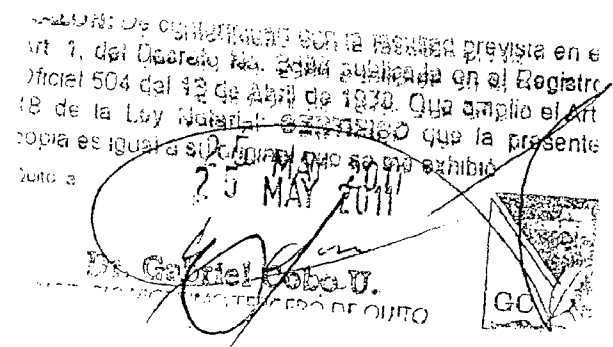 De conformidad con la facultad prevista en e
Art. 1, del Decreto No. publicada en el Registro
Oficial 504 del 12 de Abril de 1978. Que amplio el Art.
18 de la Ley Notarial. CERTIFICO que la presente
copia es igual a su original que se me exhibió
Quito a
25 MAY 2011
25 MAY 2011
Dr. Gabriel Cobo U.
TERCERO DE QUITO
GC